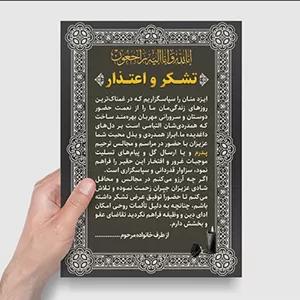 انا لله و انا الیه راجعون
تشکر و اعتذار
ایزد منان را سپاسگزاریم که در غمناک‌ترین
روزهای زندگی‌مان ما را از نعمت حضور
دوستان و سرورانی مهربان بهره‌مند ساخت
که همدردی‌شان التیامی است بر دل‌های
داغدیده ما.ابراز همدردی و بذل محبت شما
عزیزان با حضور در مراسم و مجالس ترحیم
پدرم و یا ارسال گل و پیام‌های تسلیت
موجبات غرور و افتخار این حقیر را فراهم
نمود، سزاوار قدردانی و سپاسگزاری است.
اگر چه آرزو می‌کنم در مجالس و محافل
شادی عزیزان جبران زحمت نموده و تلاش
می‌کنم تا حضورا توفیق عرض تشکر داشته
باشم، چنانچه به دلیل تألمات روحی امکان
ادای دین و وظیفه فراهم نگردید تقاضای عفو
و بخشش دارم.
از طرف خانواده مرحوم ..............